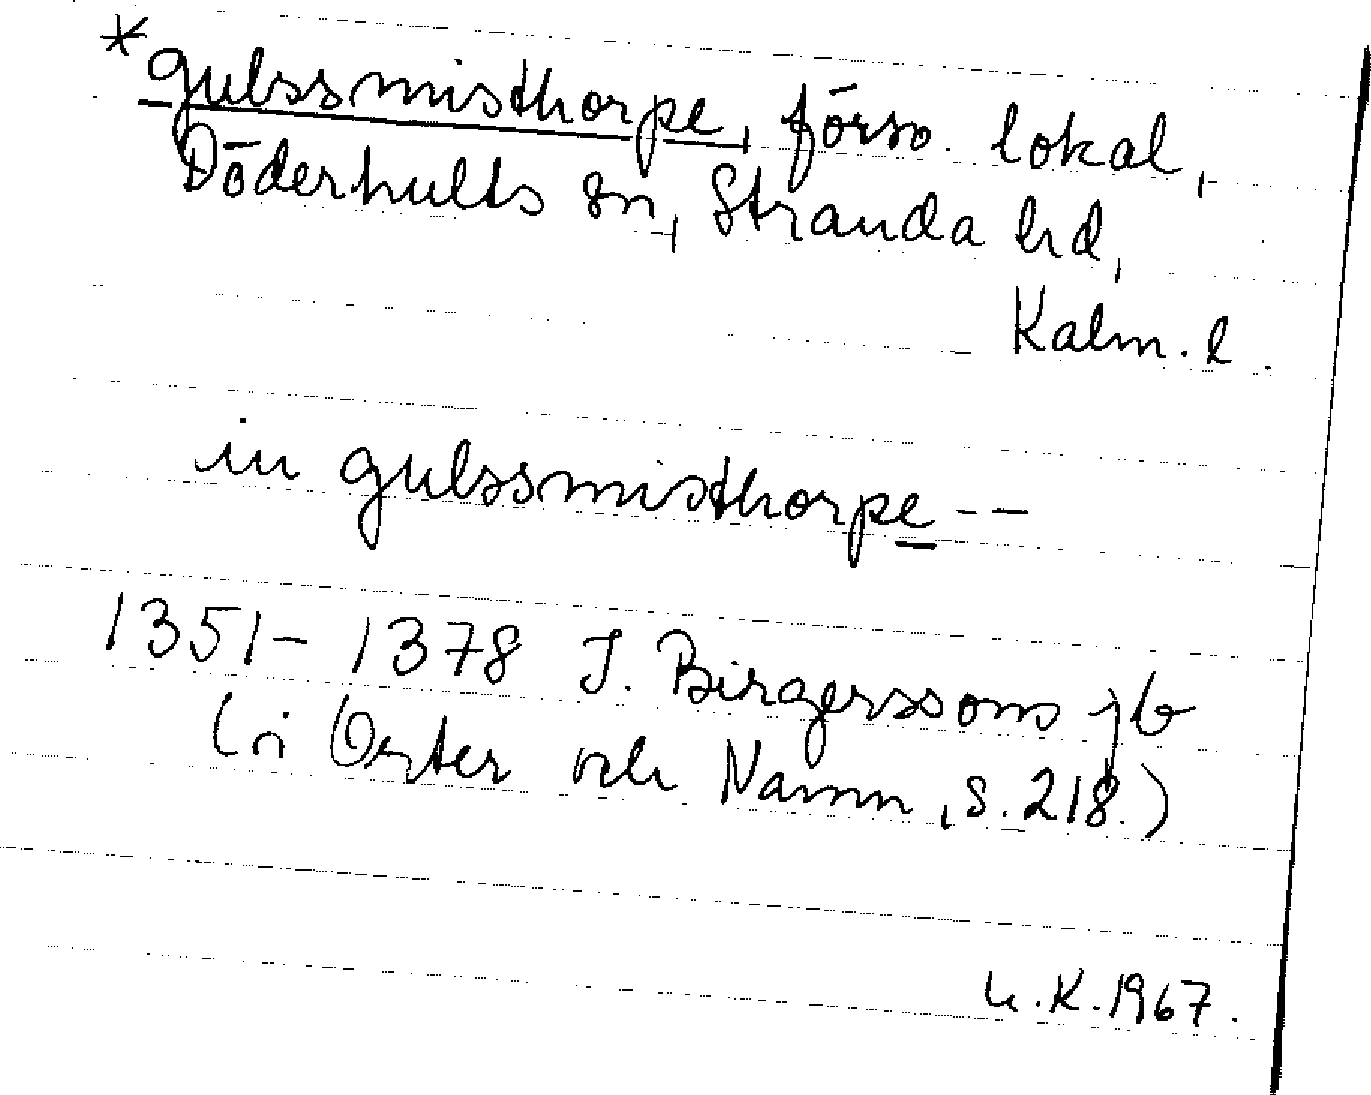 *gulssmisthorpe, försv. lokal,
Döderhults sn, Stranda hd,
Kalm. l.
in gulssmisthorpe --
1351-1378 J. Birgerssons jb
(i Orter och Namn, s. 218.)
K. 1967.